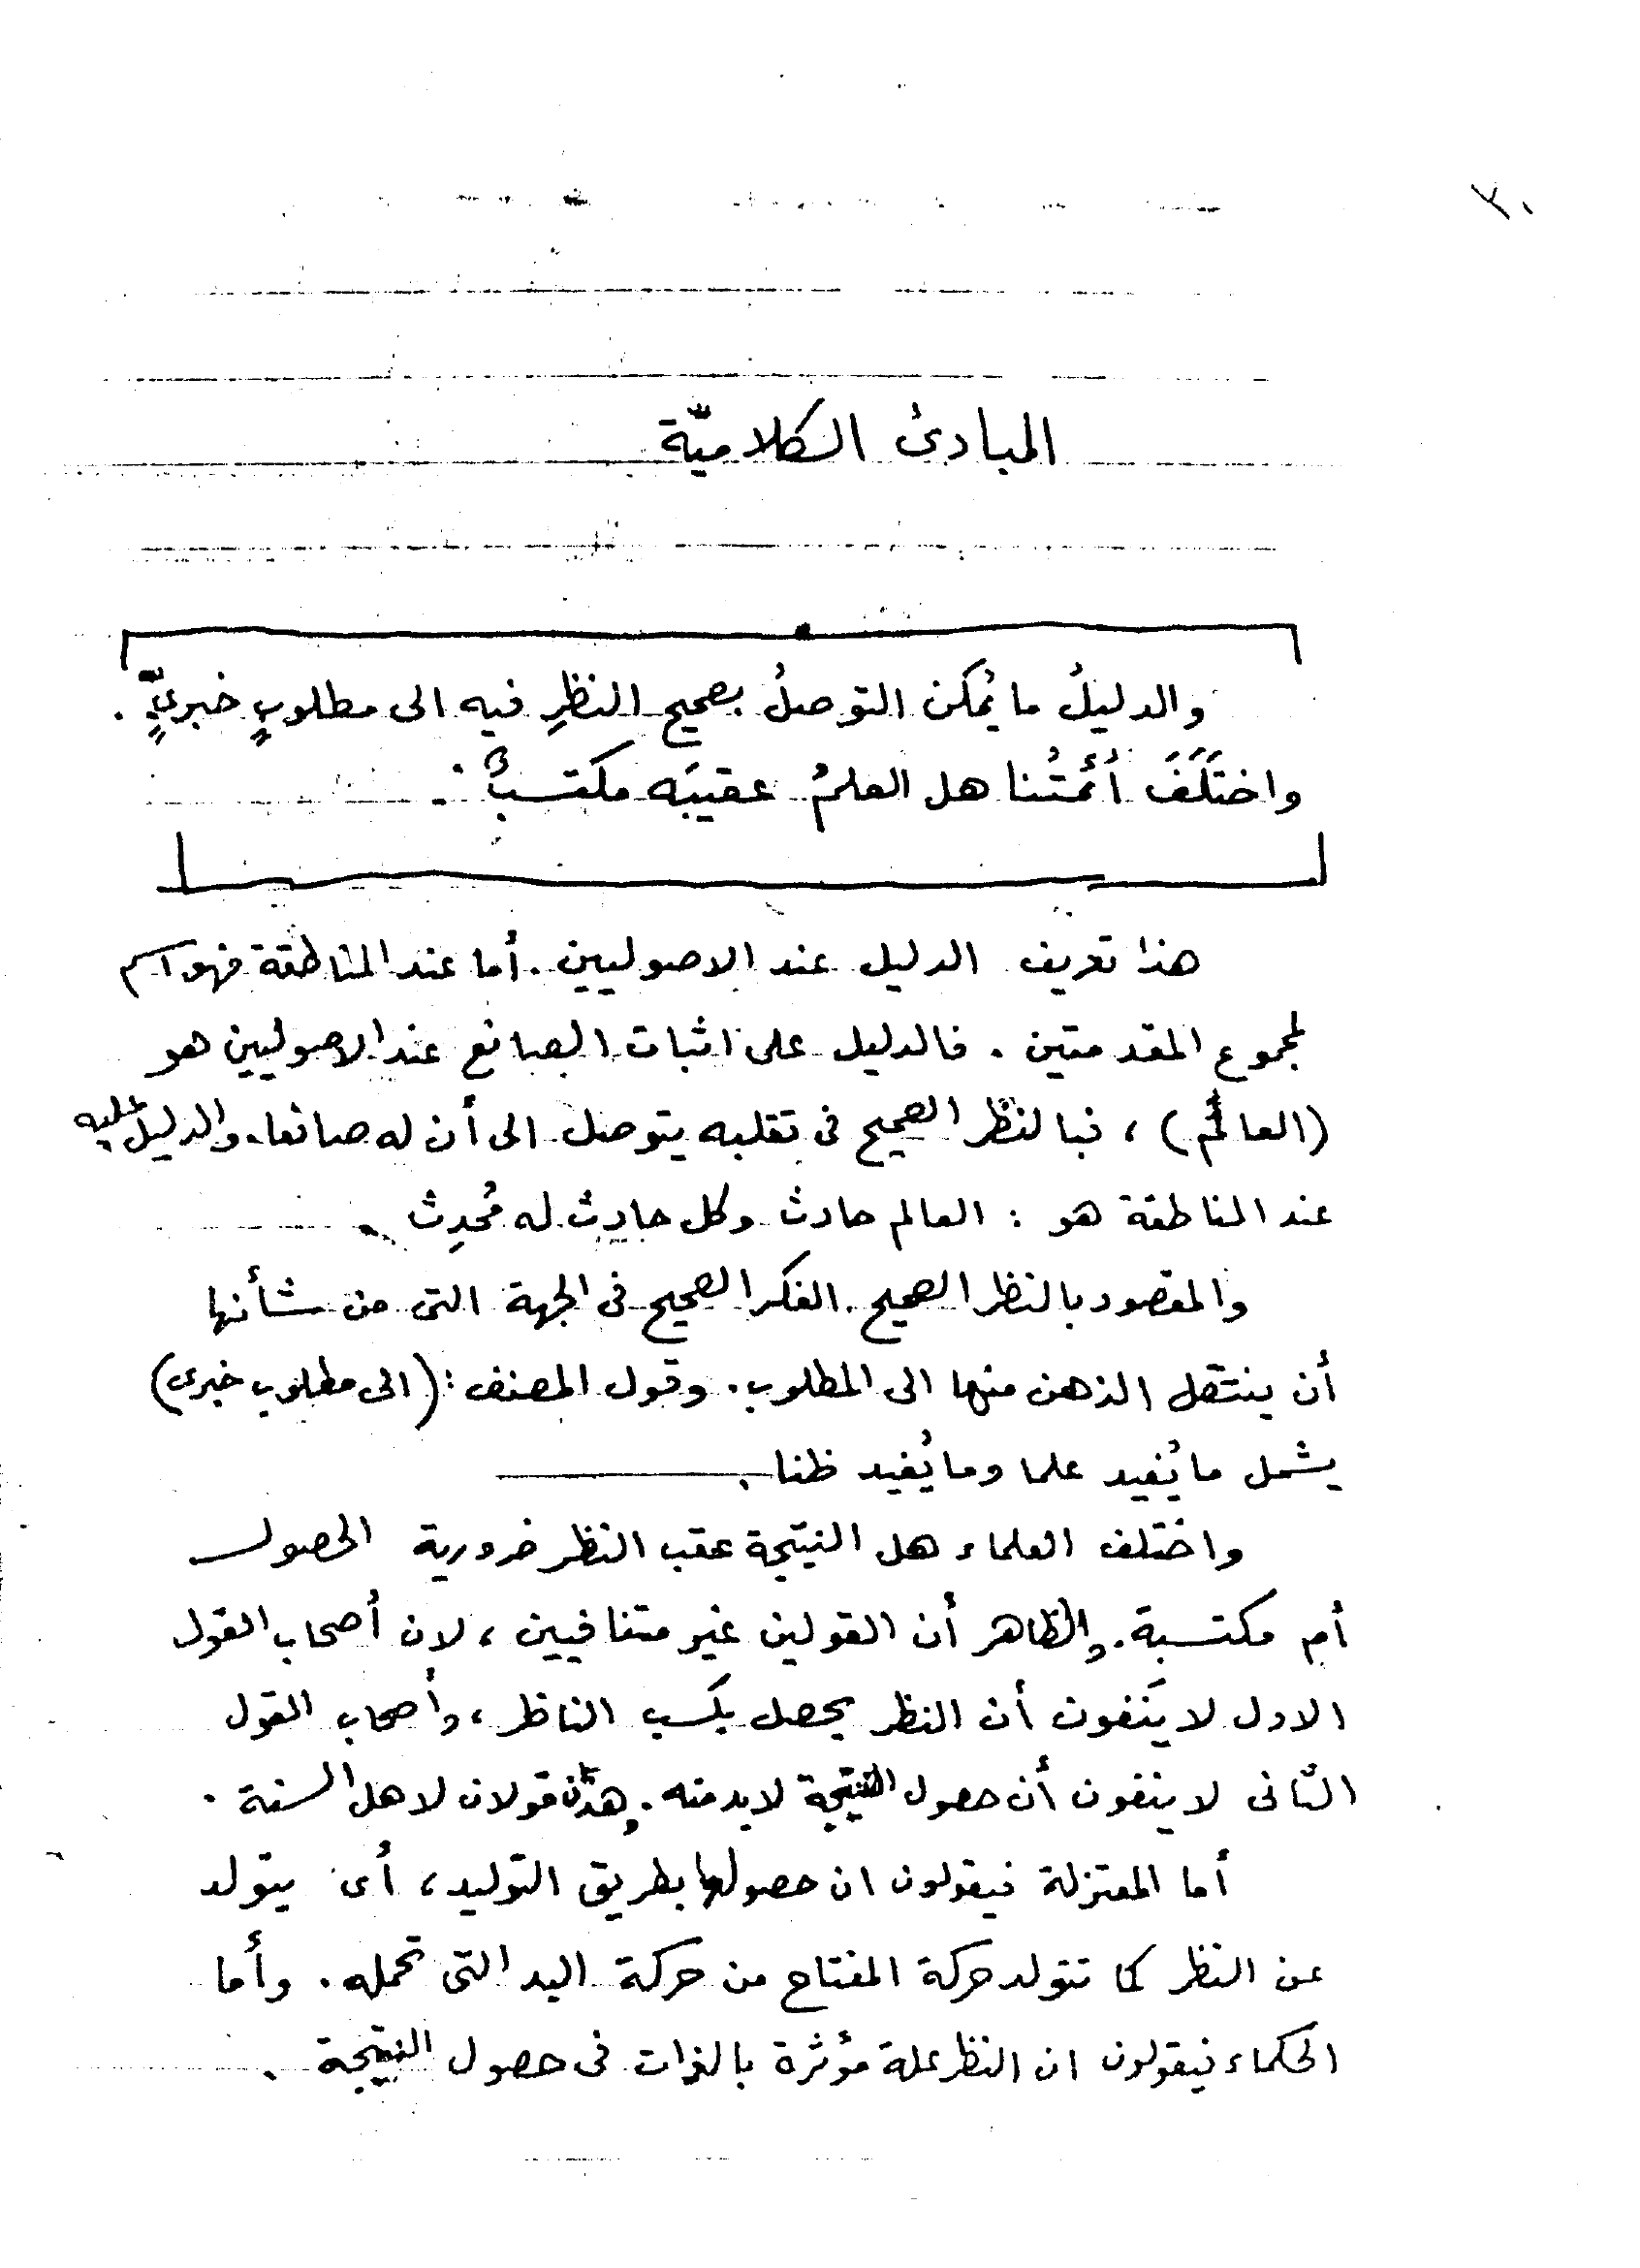 ٢٠
المبادئ الكلاميّة
والدليلُ ما يُمكن التوصلُ بصحيح النظرِ فيه الى مطلوبٍ خبريٍّ .
واختَلَفَ أئمتُنا هل العلمُ عقيبَه مكتسبٌ .
هذا تعريف الدليل عند الاصوليين . أما عند المناطقة فهو اسم
لمجموع المقدمتين . فالدليل على اثبات الصانع عند الاصوليين هو
(العالَم) ، فبالنظر الصحيح فى تقلبه يتوصل الى أن له صانعا . والدليل عليه
عند المناطقة هو : العالم حادث وكل حادث له مُحدِث .
والمقصود بالنظر الصحيح . الفكر الصحيح فى الجهة التى من شأنها
أن ينتقل الذهن منها الى المطلوب . وقول المصنف : (الى مطلوب خبرى)
يشمل ما يُفيد علما وما يُفيد ظنا .
واختلف العلماء هل النتيجة عقب النظر ضرورية الحصول
أم مكتسبة . والظاهر أن القولين غير متنافيين ، لان أصحاب القول
الاول لا يَنفون أن النظر يحصل بكسب الناظر ، وأصحاب القول
الثانى لا ينفون أن حصول النتيجة لابد منه . وهذان قولان لاهل السنة .
أما المعتزلة فيقولون ان حصولها بطريق التوليد ، أى يتولد
عن النظر كما تتولد حركة المفتاح من حركة اليد التى تحمله . وأما
الحكماء فيقولون ان النظر علة مؤثرة بالذات فى حصول النتيجة .